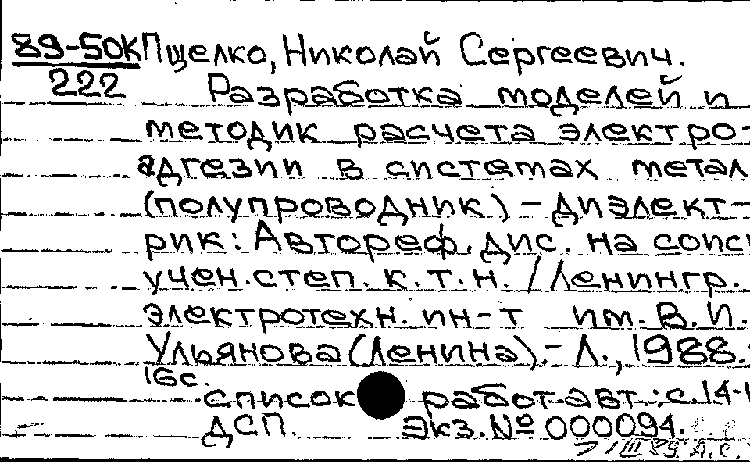 89-50К Пщелко, Николай Сергеевич.
222
Разработка моделей и
методик расчета электро-
адгезии в системах метал
(полупроводник) - диэлект-
рик: Автореф. дис. на соиск
учен. степ. к. т. н. / Ленингр.
электротехн. ин-т им. В. И.
Ульянова (Ленина). - Л., 1988. -
16с.
список работ авт.: с. 14-1
ДСП. Экз. № 000094.